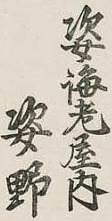 姿海老屋内
姿野